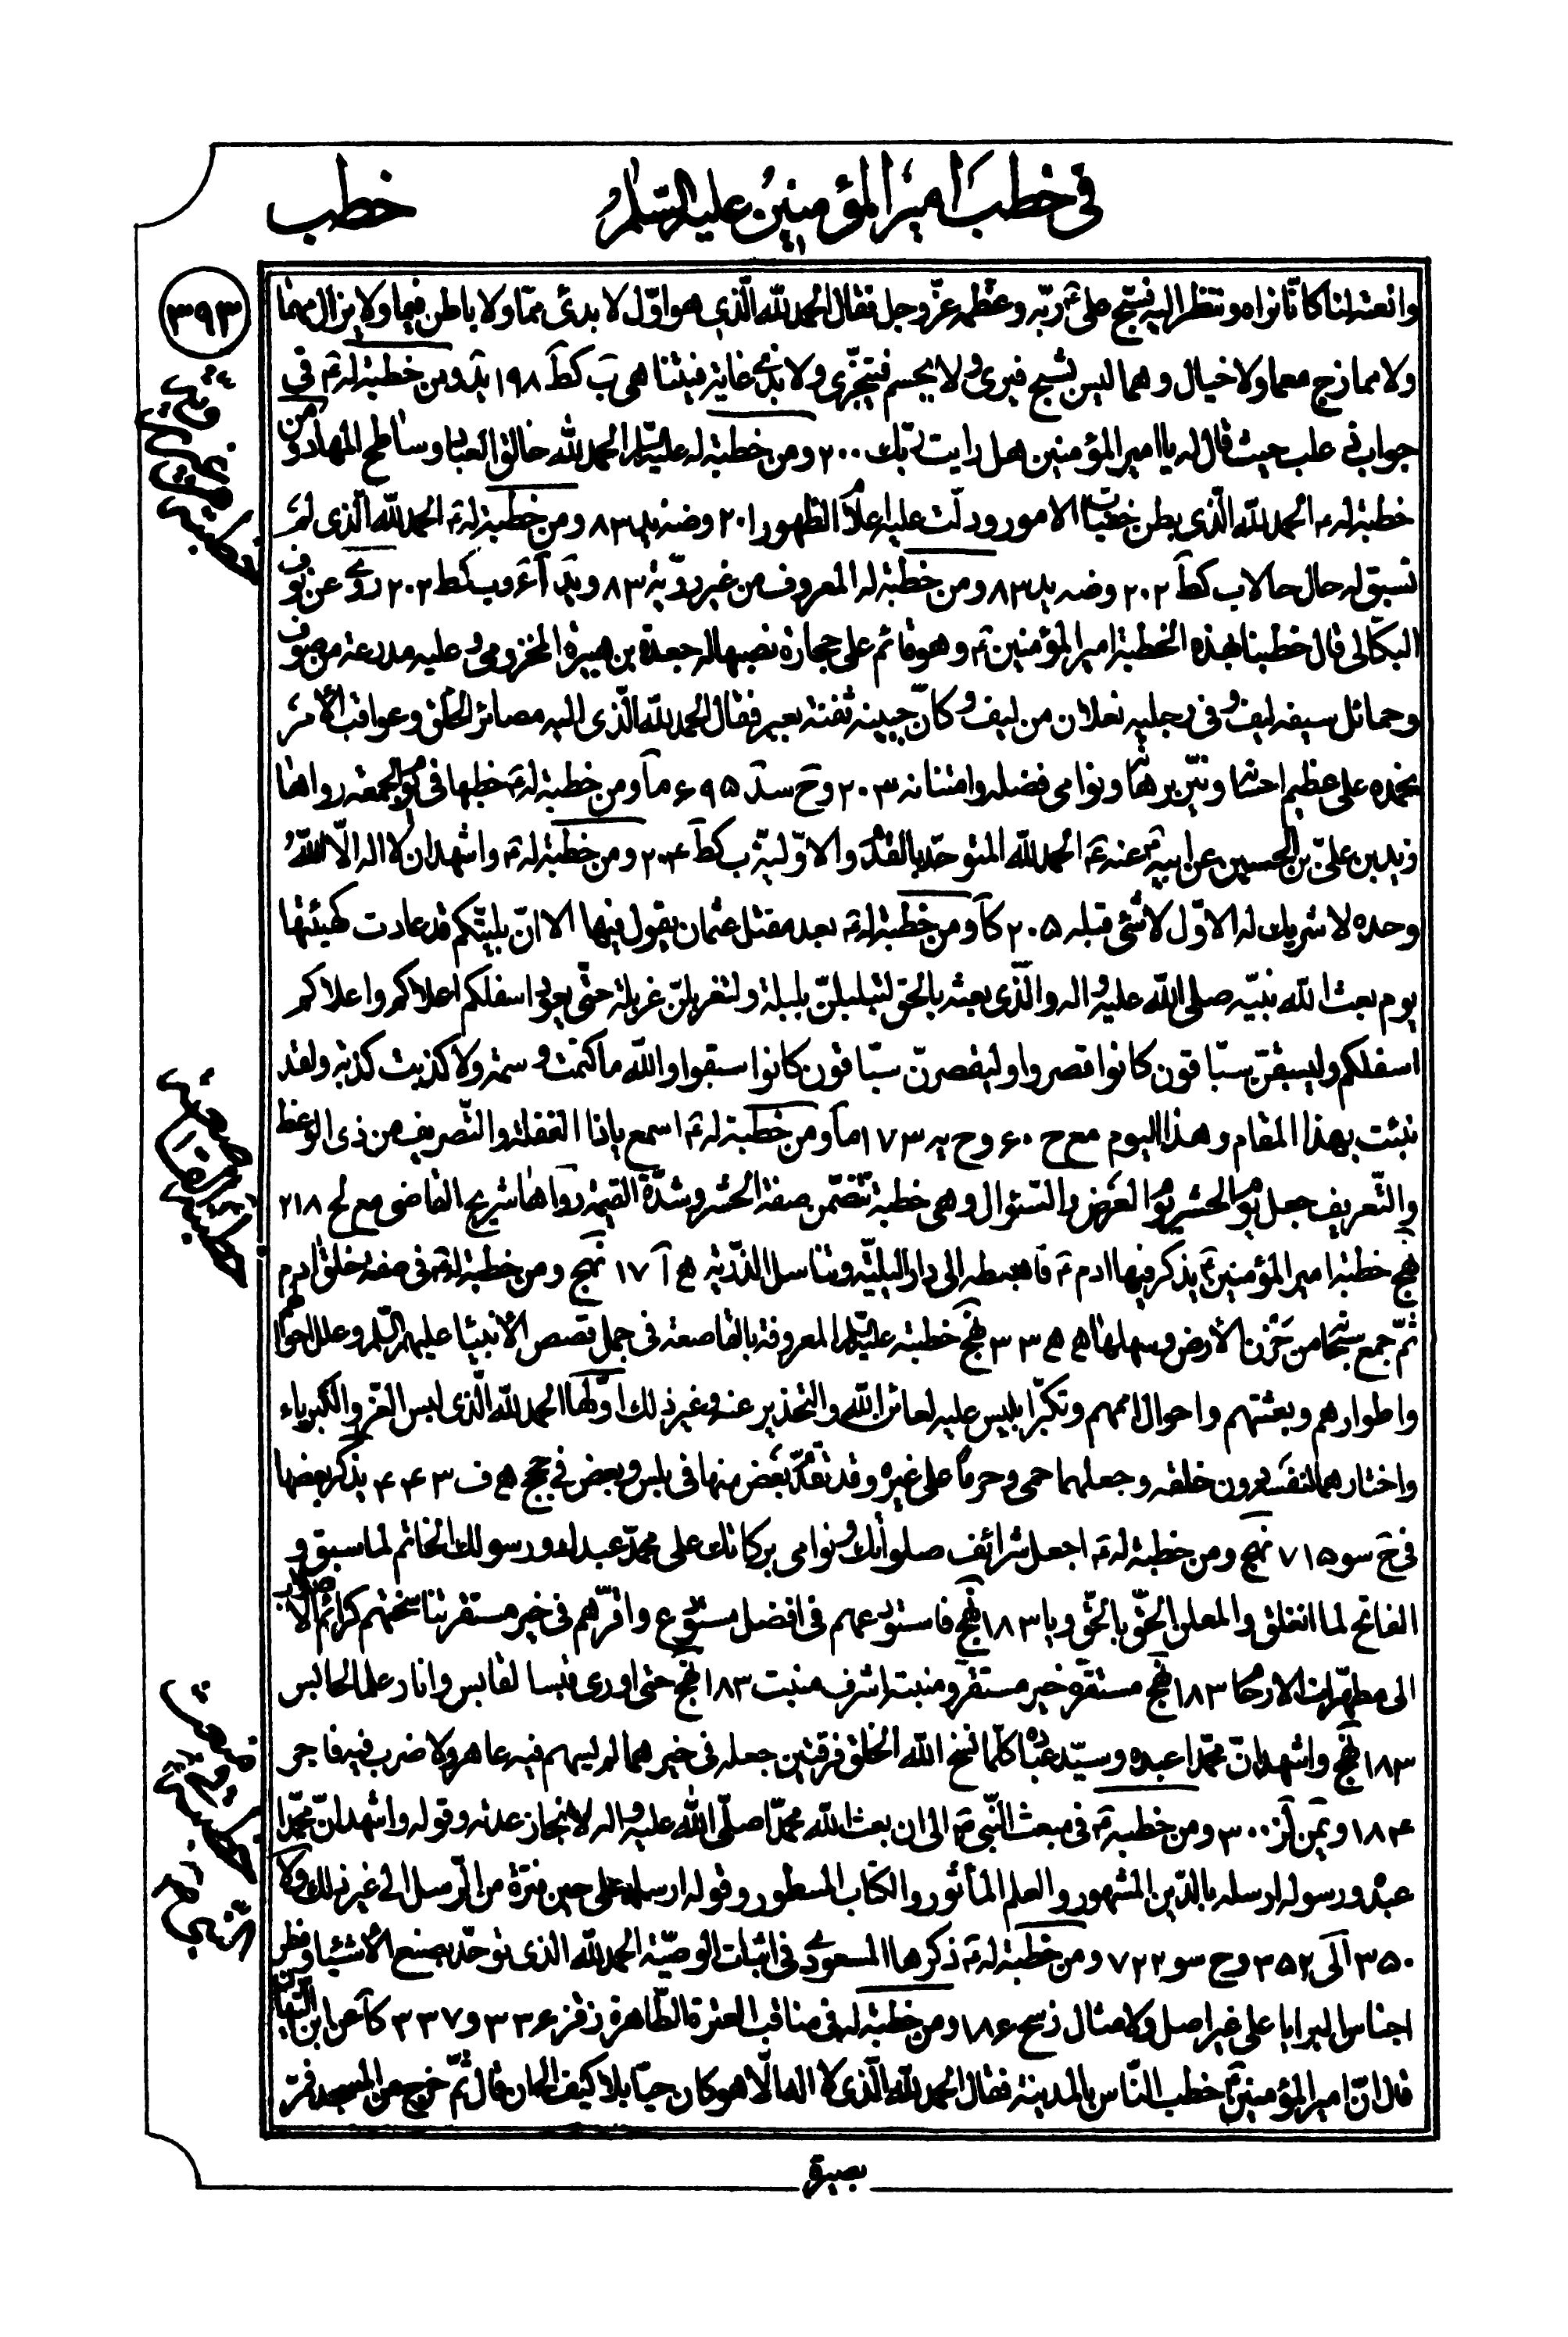 في خطب امير المؤمنين عليه السلام
خطب
٣٩٣
وانعته لنا كانّا نراه وننظر اليه فسبّح علىّ ع ربّه وعظّمه عزّ وجل فقال الحمد لله الّذى هو اوّل لا بدئ ممّا ولا باطن فيما ولا يزال مهما
ولا ممازج معما ولا خيال وهما ليس بشبح فيرى ولا بجسم فيتجزّى ولا بذى غاية فيتناهى ب كط ١٩٨ يد ومن خطبة له ع فى
جواب ذعلب حيث قال له يا امير المؤمنين هل رايت ربّك ٢٠٠ ومن خطبة له عليه السلام الحمد لله خالق العباد وساطح المهاد ومن
خطبة له ع الحمد لله الّذى بطن خفيّات الامور ودلّت عليه اعلام الظهور ٢٠١ وضه يد ٨٣ ومن خطبة له ع الحمد لله الّذى لم
تسبق له حال حالا ب كط ٢٠٢ وضه يد ٨٣ ومن خطبة له المعروف من غير رويّة ٨٣ ويد وب كط ٢٠٢ روى عن نوف
البكالى قال خطبنا بهذه الخطبة امير المؤمنين ع وهو قائم على حجارة نصبها له جعدة بن هبيرة المخزومى وعليه مدرعة من صوف
وحمائل سيفه ليف وفى رجليه نعلان من ليف وكانّ جبينه ثفنة بعير فقال الحمد لله الّذى اليه مصائر الخلق وعواقب الأمر
نحمده على عظيم احسانه ونيّر برهانه ونوامى فضله وامتنانه ٢٠٣ وح سد ٦٩٥ ما ومن خطبة له ع خطبها فى يوم الجمعة رواها
زيد بن علىّ بن الحسين عن ابيه ع عنه ع الحمد لله المتوحّد بالقدم والاوّلية ب كط ٢٠٤ ومن خطبة له ع واشهد ان لا اله الّا الله
وحده لا شريك له الاوّل لا شئ قبله ٢٠٥ كا ومن خطبة له ع بعد مقتل عثمان يقول فيها الا انّ بليّتكم قد عادت كهيئتها
يوم بعث الله نبيّه صلى الله عليه واله والّذى بعثه بالحق لتبلبلنّ بلبلة ولتغربلنّ غربلة حتّى يعود اسفلكم اعلاكم واعلاكم
اسفلكم وليسبقنّ سبّاقون كانوا قصروا وليقصرنّ سبّاقون كانوا سبقوا والله ما كتمت وسمة ولا كذبت كذبة ولقد
نبئت بهذا المقام وهذا اليوم مع ح ٦٠ وح يه ١٧٣ ما ومن خطبة له ع اسمع يا ذا الغفلة والتّصريف من ذى الوعظ
والتّعريف جعل يوم الحشر يوم العرض والسّئوال وهى خطبة تتضمّن صفة الحشر وشدّة القيمة رواها شريح القاضى مع لح ٢١٨
نهج خطبة امير المؤمنين ع يذكر فيها ادم ع فاهبطه الى دار البليّة وتناسل الذّريّة ه آ ١٧ نهج ومن خطبة له ع فى صفة خلق ادم
ثمّ جمع سبحانه من حزن الأرض وسهلها ه ه ٣٣ نهج خطبة عليه السلام المعروفة بالقاصعة فى جمل قصص الأنبياء عليهم السّلام وعلل احوالهم
واطوارهم وبعثتهم واحوال اممهم وتكبّر ابليس عليه لعائن الله والتحذير عنه وغير ذلك اوّلها الحمد لله الّذى لبس العزّ والكبرياء
واختارهما لنفسه دون خلقه وجعلهما حمى وحرما على غيره وقد تقدّم بعض منها فى بلس وبعض فى حجج ه ف ٤٤٣ يذكر بعضها
فى ح سو ٧١٥ نهج ومن خطبة له ع اجعل شرائف صلواتك ونوامى بركاتك على محمّد عبدك ورسولك الخاتم لما سبق و
الفاتح لما انغلق والمعلن الحقّ بالحقّ و با ١٨٣ نهج فاستودعهم فى افضل مستودع واقرّهم فى خير مستقر تناسختهم كرائم الأصلاب
الى مطهّرات الارحام ١٨٣ نهج مستقرّه خير مستقرّ ومنبته اشرف منبت ١٨٣ نهج حتى اورى قبسا لقابس وانار علما لحابس
١٨٣ نهج واشهد انّ محمّدا عبده وسيّد عباده كلّما نسخ الله الخلق فرقتين جعله فى خيرهما لم يسهم فيه عاهر ولا ضرب فيه فاجر
١٨٤ ويمن لز ٣٠٠ ومن خطبة ع فى مبعث النّبى ص الى ان بعث الله محمّدا صلّى الله عليه واله لانجاز عدته وقوله واشهد انّ محمّدا
عبده ورسوله ارسله بالدّين المشهور والعلم المأثور والكتاب المسطور وقوله ارسله على حين فترة من الرّسل الى غير ذلك ولا
٣٥٠ الى ٣٥٢ وح سو ٧٢٢ ومن خطبة له ع ذكرها المسعودى فى اثبات الوصيّة الحمد لله الذى توحّد بصنع الأشياء وفطر
اجناس البرايا على غير اصل ولا مثال ز سح ١٨٦ ومن خطبة له فى مناقب العترة الطّاهرة ز قز ٣٣٦ و ٣٣٧ كا عن ابن التّيهان
قال انّ امير المؤمنين ع خطب النّاس بالمدينة فقال الحمد لله الّذى لا اله الّا هو كان حيّا بلا كيف الى ان قال ثمّ خرج من المسجد فمرّ
بصيرة